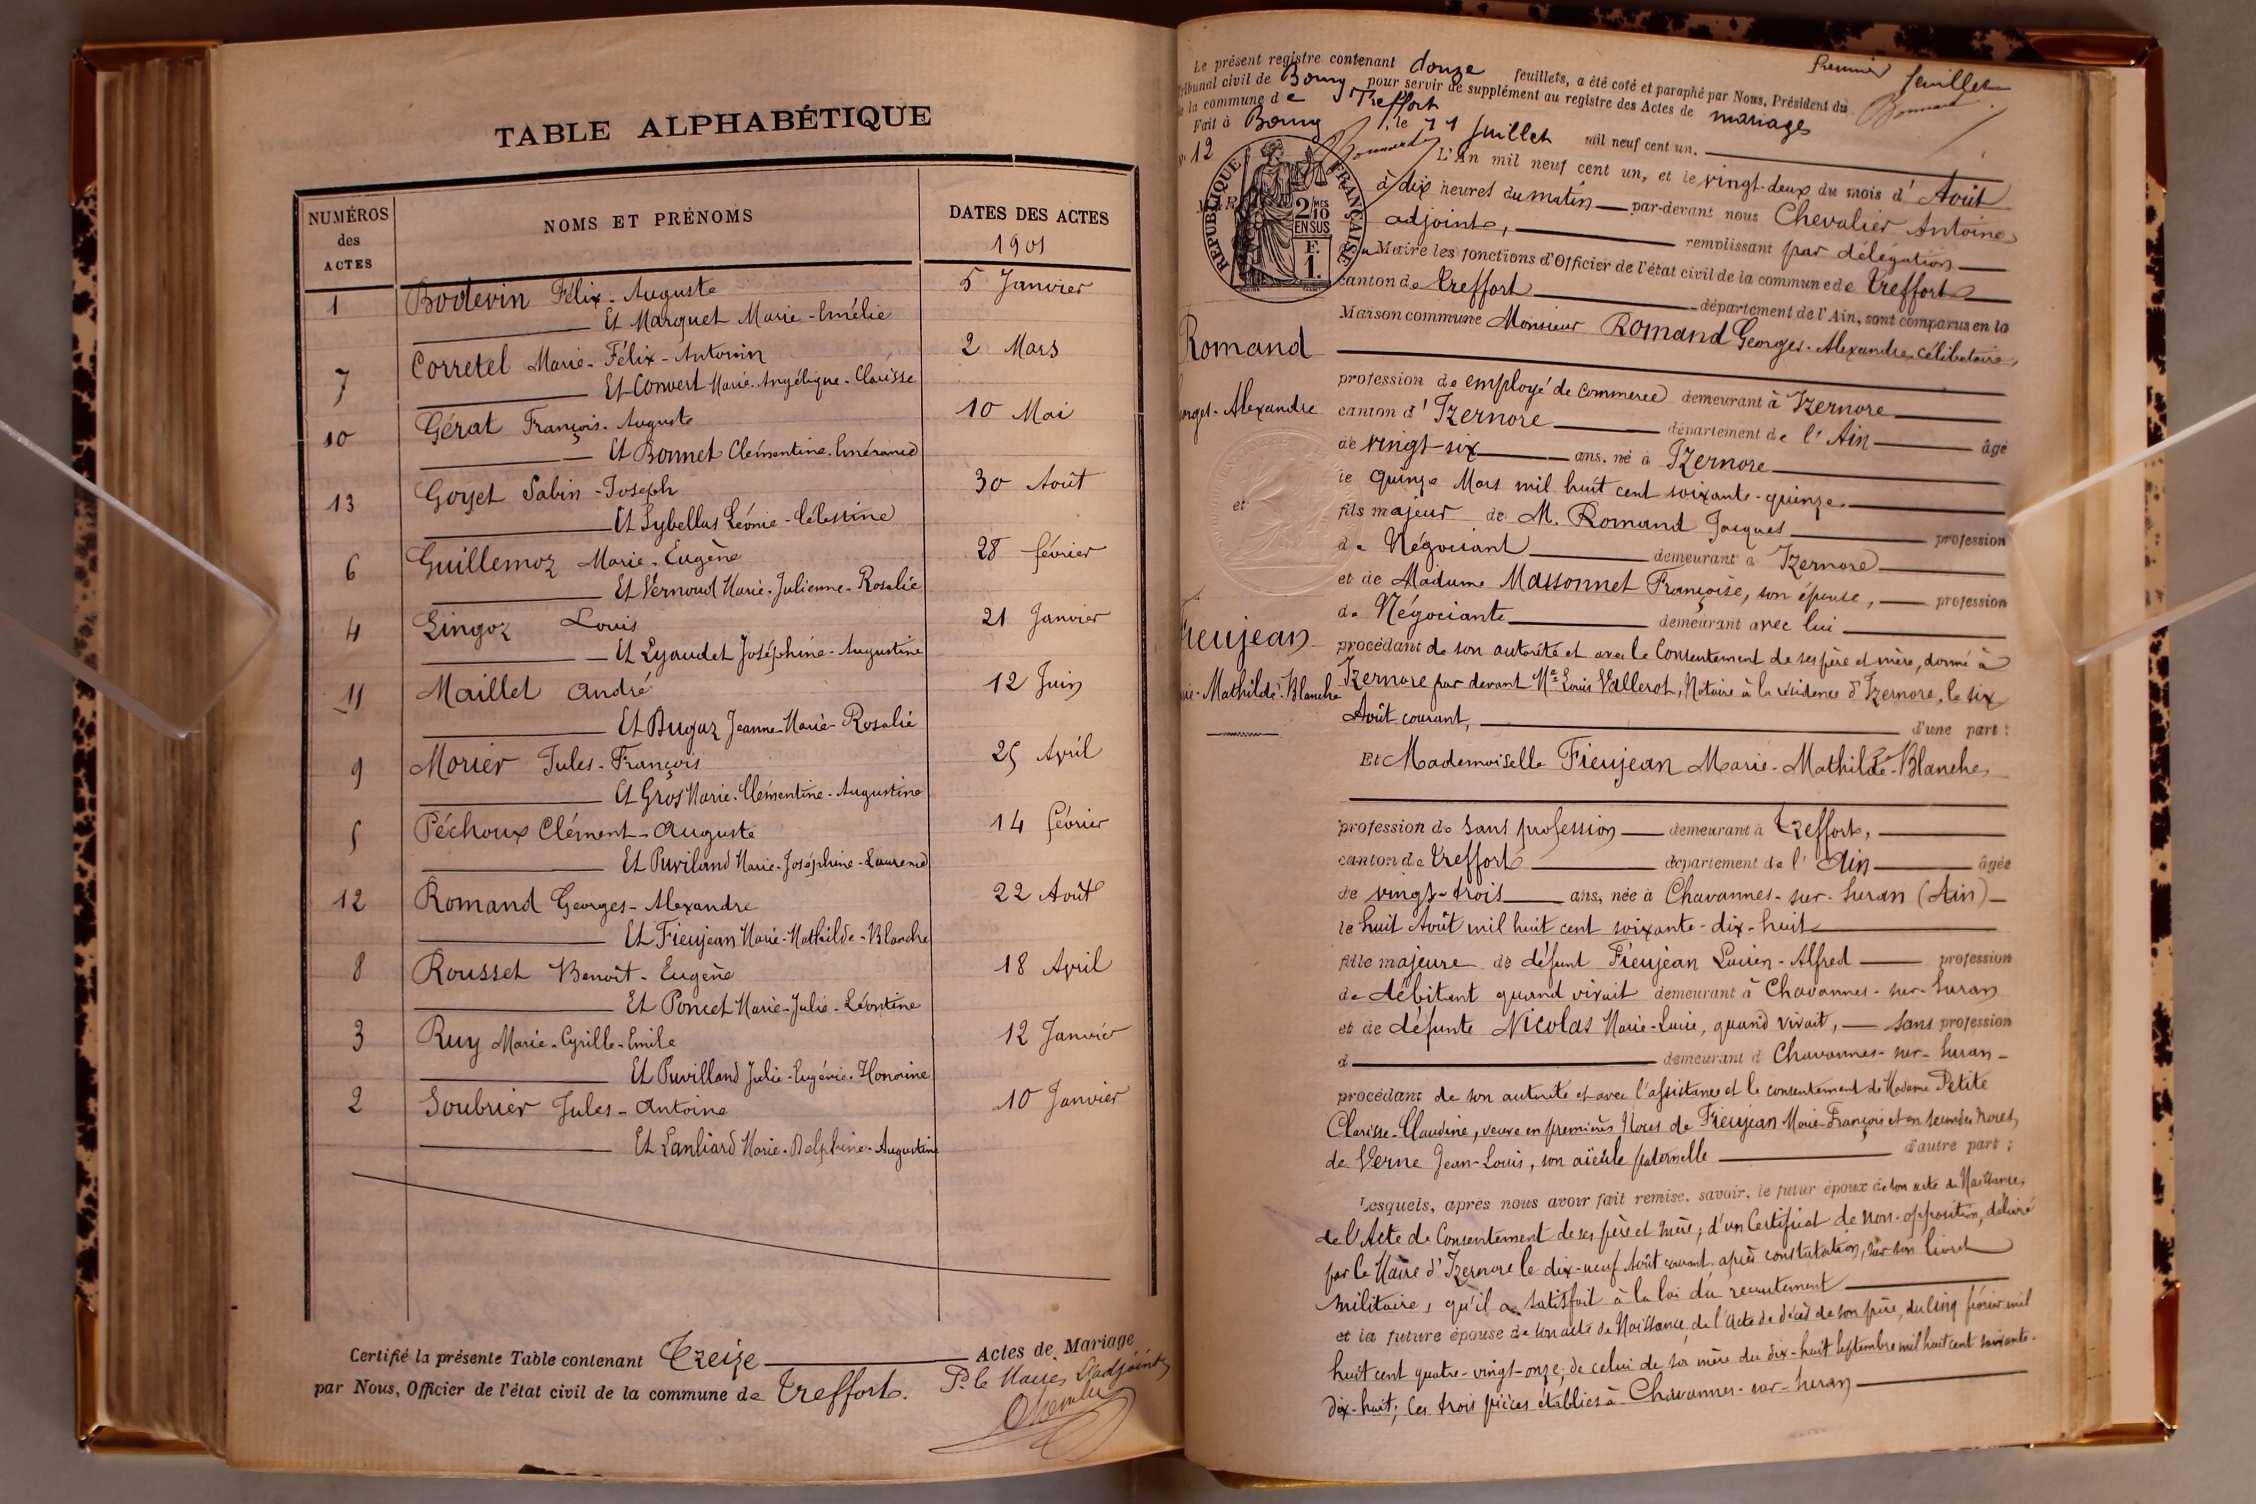 TABLE ALPHABÉTIQUE
NUMÉROS des ACTES
NOMS ET PRÉNOMS
DATES DES ACTES
1901
1 Bodevin Félix-Auguste 5 Janvier
Et Marquet Marie-Emélie
7 Corretel Marie-Félix-Antonin 2 Mars
Et Convert Marie-Angélique-Clarisse
10 Gérat François-Auguste 10 Mai
Et Bonnet Clémentine
13 Goyet Sabin-Joseph 30 Août
Et Sybellas Léonie-Célestine
6 Guillemoz Marie-Eugène 28 février
Et Vernoud Marie-Julienne-Rosalie
4 Lingoz Louis 21 Janvier
Et Lyaudet Joséphine-Augustine
11 Maillet André 12 Juin
Et Buguz Jeanne-Marie-Rosalie
9 Morier Jules-François 25 Avril
Et Gros Marie-Clémentine-Augustine
5 Péchoux Clément-Auguste 14 février
Et Puviland Marie-Joséphine-Laurence
12 Romand Georges-Alexandre 22 Août
Et Fieujean Marie-Mathilde-Blanche
8 Rousset Benoît-Eugène 18 Avril
Et Poncet Marie-Julie-Léontine
3 Ruy Marie-Cyrille-Emile 12 Janvier
Et Puvilland Julie-Eugénie-Honorine
2 Soubrier Jules-Antoine 10 Janvier
Et Lanliard Marie-Delphine-Augustine
Certifié la présente Table contenant Treize Actes de Mariage
par Nous, Officier de l'état civil de la commune de Treffort.
P. le Maire, L'adjoint
Premier feuillet
Le présent registre contenant douze feuillets, a été coté et paraphé par Nous, Président du
Tribunal civil de Bourg pour servir de supplément au registre des Actes de mariages
de la commune de Treffort
Fait à Bourg, le 11 Juillet mil neuf cent un.
N° 12
RÉPUBLIQUE FRANÇAISE
2/10 MES EN SUS
F. 1.
L'An mil neuf cent un, et le vingt-deux du mois d'Août
à dix heures du matin par-devant nous Chevalier Antoine
adjoint, remplissant par délégation
du Maire les fonctions d'Officier de l'état civil de la commune de Treffort
canton de Treffort département de l'Ain, sont comparus en la
Maison commune Monsieur Romand Georges-Alexandre, célibataire,
Romand
Georges-Alexandre
et
Fieujean
Marie-Mathilde-Blanche
profession de employé de commerce demeurant à Izernore
canton d'Izernore département de l'Ain âgé
de vingt-six ans, né à Izernore
le quinze Mars mil huit cent soixante-quinze.
fils majeur de M. Romand Jacques profession
de Négociant demeurant à Izernore
et de Madame Massonnet Françoise, son épouse, profession
de Négociante demeurant avec lui
procédant de son autorité et avec le Consentement de ses père et mère, donné à
Izernore par devant Me Louis Vallerot, Notaire à la résidence d'Izernore, le six
Août courant, d'une part :
Et Mademoiselle Fieujean Marie-Mathilde-Blanche,
profession de sans profession demeurant à Treffort,
canton de Treffort département de l'Ain âgée
de vingt-trois ans, née à Chavannes-sur-Suran (Ain)
le huit Août mil huit cent soixante-dix-huit
fille majeure de défunt Fieujean Lucien-Alfred profession
de débitant quand vivait demeurant à Chavannes-sur-Suran
et de défunte Nicolas Marie-Lucie, quand vivait, sans profession
d demeurant à Chavannes-sur-Suran
procédant de son autorité et avec l'assistance et le consentement de Madame Petite
Clarisse-Claudine, veuve en premières Noces de Fieujean Marie-François et en secondes Noces,
de Verne Jean-Louis, son aïeule paternelle d'autre part ;
Lesquels, après nous avoir fait remise, savoir, le futur époux de son acte de Naissance,
de l'Acte de Consentement de ses père et mère ; d'un Certificat de non-opposition, délivré
par le Maire d'Izernore le dix-neuf Août courant, après constatation, sur son livret
militaire, qu'il a satisfait à la loi du recrutement
et la future épouse de son acte de Naissance, de l'acte de décès de son père, du cinq février mil
huit cent quatre-vingt-onze ; de celui de sa mère du dix-huit Septembre mil huit cent soixante-
dix-huit ; Ces trois pièces établies à Chavannes-sur-Suran